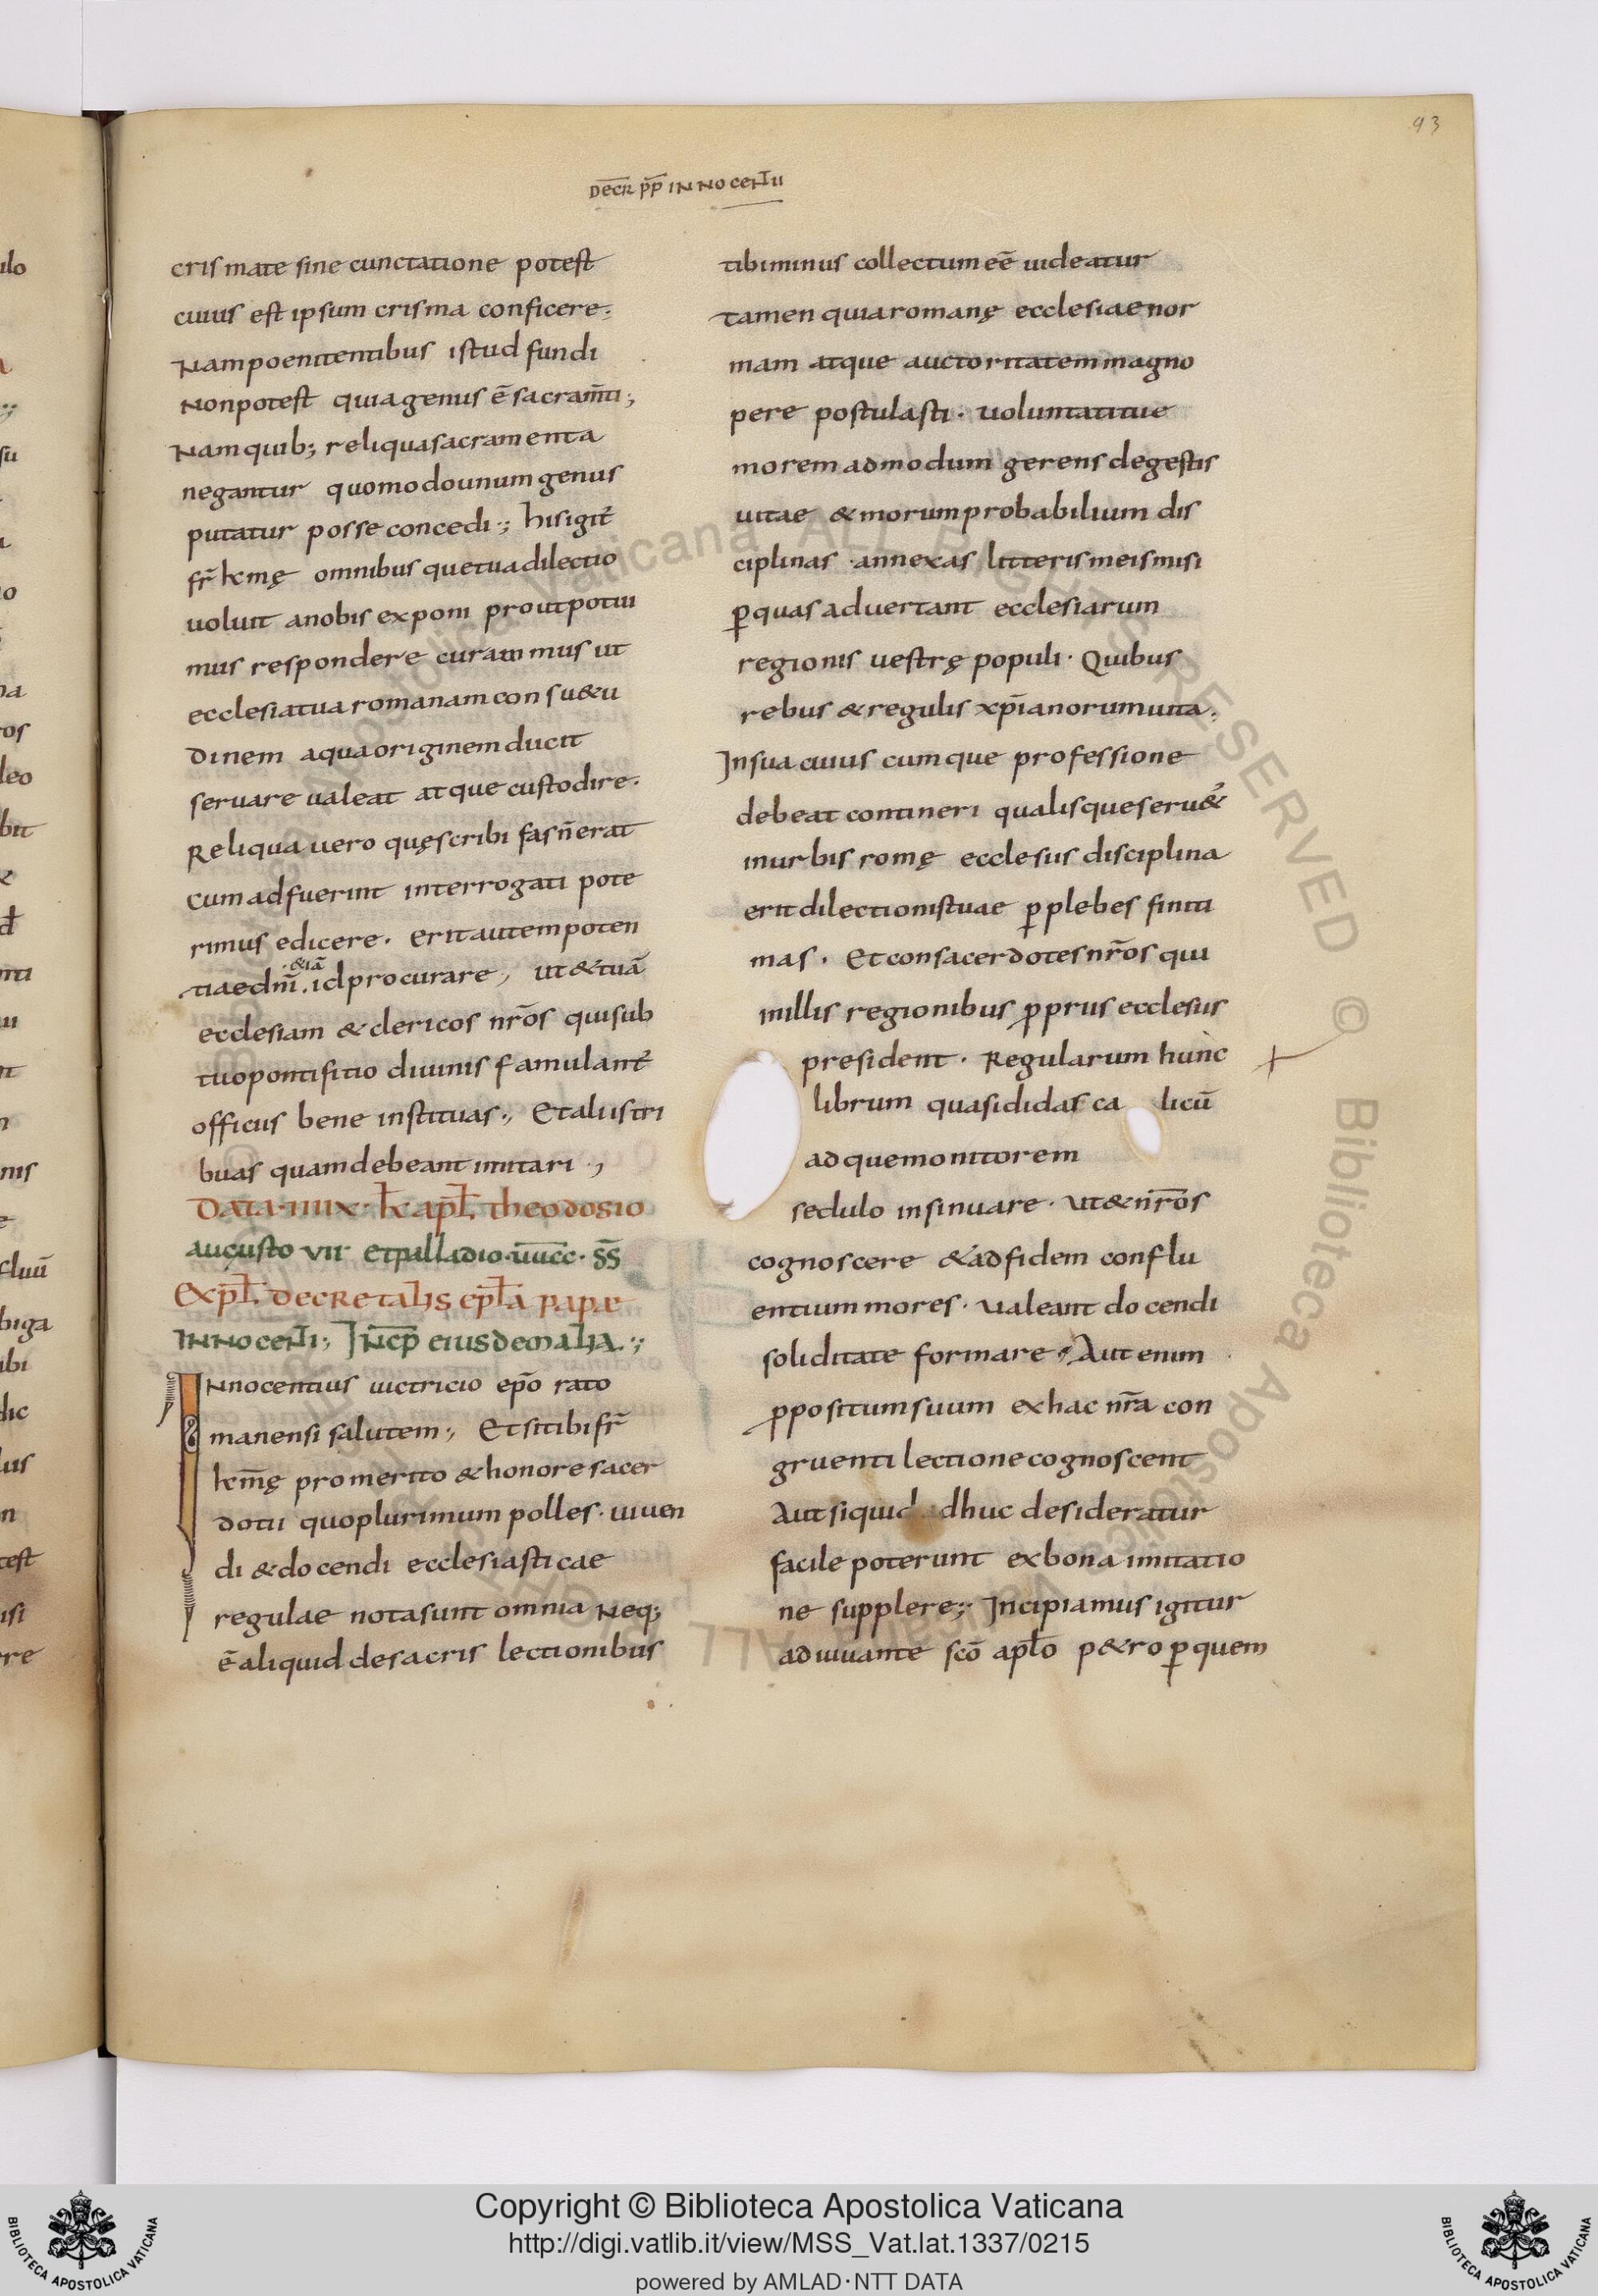 93
DECR̄ P̄P̄ INNOCENTII
crismate sine cunctatione potest
cuius est ipsum crisma conficere.
Nam poenitentibus istud fundi
Non potest quia genus ē sacram̄ti;
Nam quib; reliqua sacramenta
negantur quomodo unum genus
putatur posse concedi; his igit̄
fr̄ kmę omnibus que tua dilectio
uoluit a nobis exponi prout potui
mus respondere curauimus ut
ecclesia tua romanam consu&u
dinem a qua originem ducit
seruare ualeat atque custodire.
Reliqua uero quę scribi fas n̄ erat
cum adfuerint interrogati pote
rimus edicere. erit autem poten
tiae dn̄i &iā id procurare, ut & tuā
ecclesiam & clericos nr̄os qui sub
tuo pontifitio diuinis famulant̄
officiis bene instituas; Et aliis tri
buas quam debeant imitari;
Data. IIIIX. k̄ apł. theodosio
augusto VII et palladio. uucc. ss̄
Expł. decretalis epła papae
INNOCENTI; INCP̄ eiusdem alia;
INnocentius uictricio ep̄o rato
manensi salutem; Et si tibi fr̄
km̄ę pro merito & honore sacer
dotii quo plurimum polles. uiuen
di & docendi ecclesiasticae
regulae nota sunt omnia Neq;
ē aliquid de sacris lectionibus
tibi minus collectum eē uideatur
tamen quia romanę ecclesiae nor
mam atque auctoritatem magno
pere postulasti. uoluntati tue
morem admodum gerens de gestis
uitae & morum probabilium dis
ciplinas annexas litteris meis misi
ꝑ quas aduertant ecclesiarum
regionis uestrę populi. Quibus
rebus & regulis xp̄ianorum uita.
In sua cuius cumque professione
debeat contineri qualisque seru&
in urbis romę ecclesiis disciplina
erit dilectionis tuae ꝑ plebes finiti
mas. Et consacerdotes nr̄os qui
in illis regionibus ꝓpriis ecclesiis
president. Regularum hunc
librum quasi didascalicū
ad quemonitorem
sedulo insinuare. ut & nr̄os
cognoscere & ad fidem conflu
entium mores. ualeant docendi
soliditate formare. Aut enim
ꝓpositum suum ex hac nr̄a con
gruenti lectione cognoscent
Aut si quid adhuc desideratur
facile poterunt ex bona imitatio
ne supplere; Incipiamus igitur
adiuuante sc̄o apł̄o p&ro ꝑ quem
Copyright © Biblioteca Apostolica Vaticana
http://digi.vatlib.it/view/MSS_Vat.lat.1337/0215
powered by AMLAD·NTT DATA